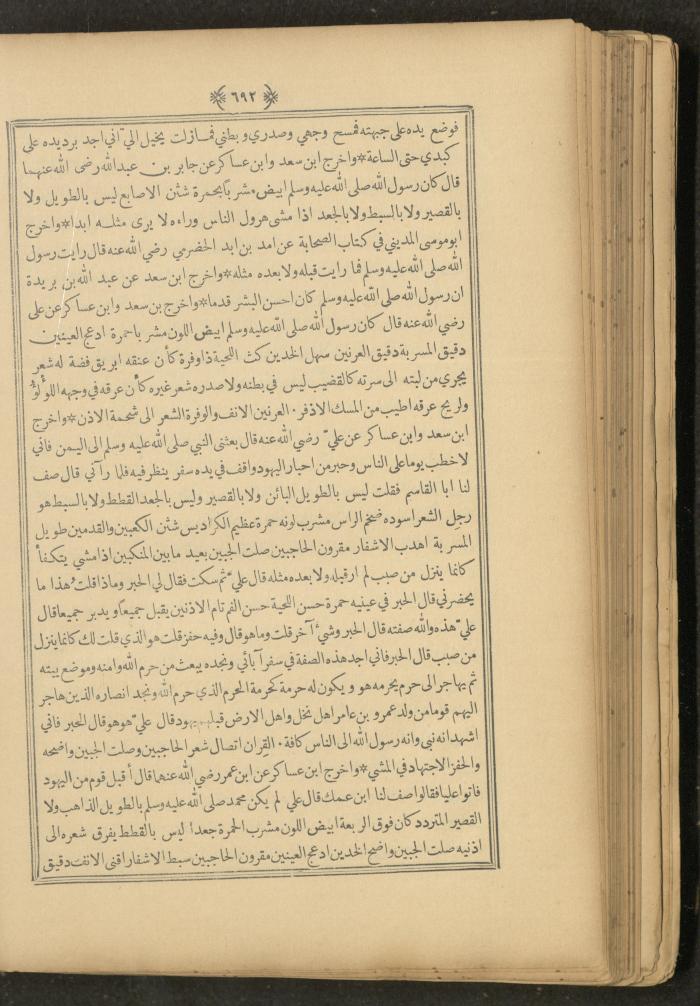 ﴿ ٦٩٢ ﴾
فوضع يده على جبهته فمسح وجهي وصدري وبطني فما زلت يخيل الي اني اجد برد يده على
كبدي حتى الساعة * واخرج ابن سعد وابن عساكر عن جابر بن عبد الله رضى الله عنهما
قال كان رسول الله صلى الله عليه وسلم ابيض مشرباً بحمرة شثن الاصابع ليس بالطويل ولا
بالقصير ولا بالسبط ولا بالجعد اذا مشى هرول الناس وراءه لا يرى مثله ابدا * واخرج
ابو موسى المديني في كتاب الصحابة عن امد بن ابد الحضرمي رضي الله عنه قال رايت رسول
الله صلى الله عليه وسلم فما رايت قبله ولا بعده مثله * واخرج ابن سعد عن عبد الله بن بريدة
ان رسول الله صلى الله عليه وسلم كان احسن البشر قدما * واخرج بن سعد وابن عساكر عن على
رضي الله عنه قال كان رسول الله صلى الله عليه وسلم ابيض اللون مشربا حمرة ادعج العينين
دقيق المسربة دقيق العرنين سهل الخدين كث اللحية ذا وفرة كأن عنقه ابريق فضة له شعر
يجري من لبته الى سرته كالقضيب ليس في بطنه ولا صدره شعر غيره كأن عرقه في وجهه اللؤلؤ
ولريح عرقه اطيب من المسك الاذفر ٠ العرنين الانف والوفرة الشعر الى شحمة الاذن * واخرج
ابن سعد وابن عساكر عن علي رضي الله عنه قال بعثنى النبي صلى الله عليه وسلم الى اليمن فاني
لاخطب يوما على الناس وحبر من احبار اليهود واقف في يده سفر ينظر فيه فلما رآني قال صف
لنا ابا القاسم فقلت ليس بالطويل البائن ولا بالقصير وليس بالجعد القطط ولا بالسبط هو
رجل الشعر اسوده ضخم الراس مشرب لونه حمرة عظيم الكراديس شثن الكعبين والقدمين طويل
المسربة اهدب الاشفار مقرون الحاجبين صلت الجبين بعيد ما بين المنكبين اذا مشي يتكفأ
كانما ينزل من صبب لم ار قبله ولا بعده مثله قال علي ثم سكت فقال لي الحبر وماذا قلت هذا ما
يحضرني قال الحبر في عينيه حمرة حسن اللحية حسن الفم تام الاذنين يقبل جميعاً ويدبر جميعا قال
علي هذه والله صفته قال الحبر وشيء آخر قلت وما هو قال وفيه حفز قلت هو الذي قلت لك كانما ينزل
من صبب قال الحبر فاني اجد هذه الصفة في سفر آبائي ونجده يبعث من حرم الله وامنه وموضع بيته
ثم يهاجر الى حرم يحرمه هو ويكون له حرمة كحرمة الحرم الذي حرم الله ونجد انصاره الذين هاجر
اليهم قوما من ولد عمرو بن عامر اهل نخل واهل الارض قبلهم يهود قال علي هو هو قال الحبر فاني
اشهد انه نبي وانه رسول الله الى الناس كافة ٠ القران اتصال شعر الحاجبين وصلت الجبين واضحه
والحفز الاجتهاد في المشي * واخرج ابن عساكر عن ابن عمر رضي الله عنهما قال أقبل قوم من اليهود
فاتوا عليا فقالوا صف لنا ابن عمك قال علي لم يكن محمد صلى الله عليه وسلم بالطويل الذاهب ولا
القصير المتردد كان فوق الربعة ابيض اللون مشرب الحمرة جعداً ليس بالقطط يفرق شعره الى
اذنيه صلت الجبين واضح الخدين ادعج العينين مقرون الحاجبين سبط الاشفار اقنى الانف دقيق